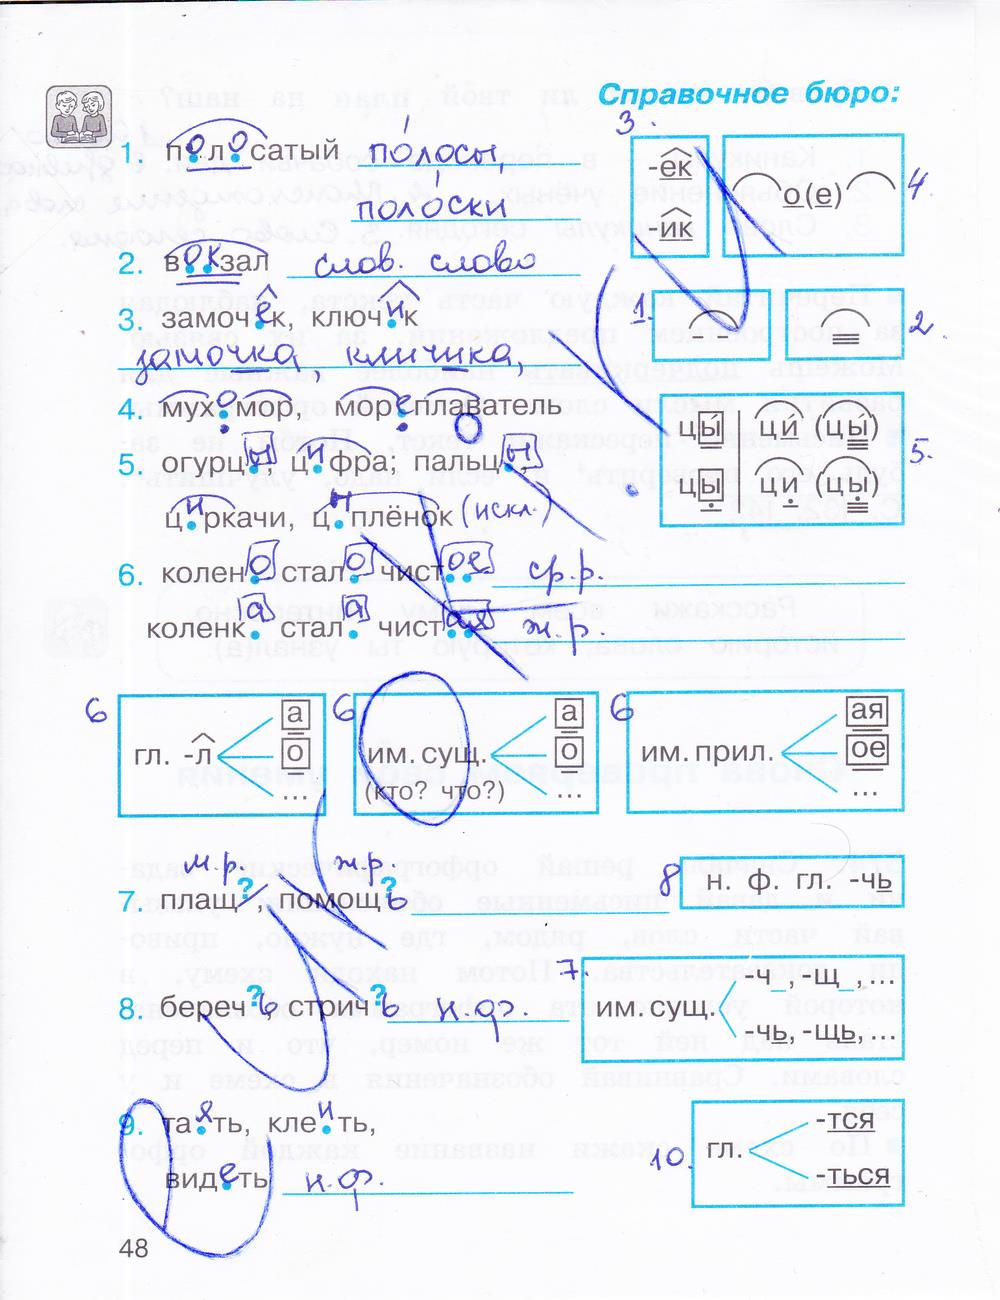 Справочное бюро:
1. полосатый полосы,
полоски
2. вокзал слов. слово
3. замочек, ключик
замочка, ключика
4. мухомор, мореплаватель
5. огурцы, цифра, пальцы
циркачи, цыплёнок (искл.)
6. колено стало чистое ср.р.
коленка стала чистая ж.р.
3. -ек
-ик
о(е) 4.
1. -
2.
цы ци (цы)
цы ци (цы) 5.
6 гл. -л а о ...
6 им. сущ. (кто? что?) а о ...
6 им. прил. ая ое ...
м.р. ж.р.
7. плащ?, помощ?ь
8 н. ф. гл. -чь
8. береч?ь, стрич?ь н.ф.
7. им. сущ. -ч_, -щ_, ...
-чь, -щь, ...
9. таять, клеить,
видеть н.ф.
10. гл. -тся
-ться
48